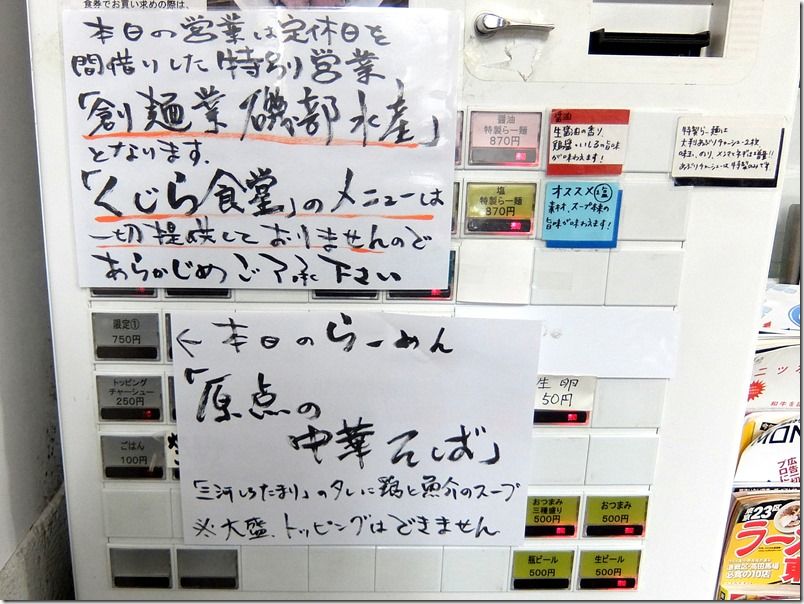 食券でお買い求めの際は、
本日の営業は定休日を
間借りした特別営業
「創麺業 磯部水産」
となります。
「くじら食堂」のメニューは
一切提供しておりませんので
あらかじめご了承下さい
醤油
特製らー麺
870円
醤油
生醤油の香り、
が味わえます!
特製らー麺は
塩
特製らー麺
870円
オススメ×塩
素材、スープ本来の
旨味が味わえます!
限定①
750円
←本日のらーめん
「原点の
中華そば」
「三河しろたまり」のタレに鶏と魚介のスープ
※大盛、トッピングはできません
トッピング
チャーシュー
250円
生卵
50円
ごはん
100円
おつまみ
三種盛り
500円
おつまみ
500円
瓶ビール
500円
生ビール
500円
東京23区
ラー
必食の10店